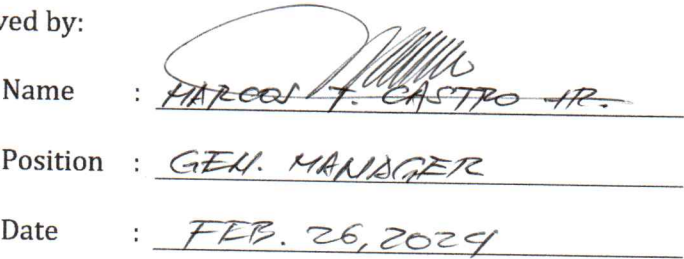 ved by:
Name : MARCOS T. CASTRO JR.
Position : GEN. MANAGER
Date : FEB. 26, 2024